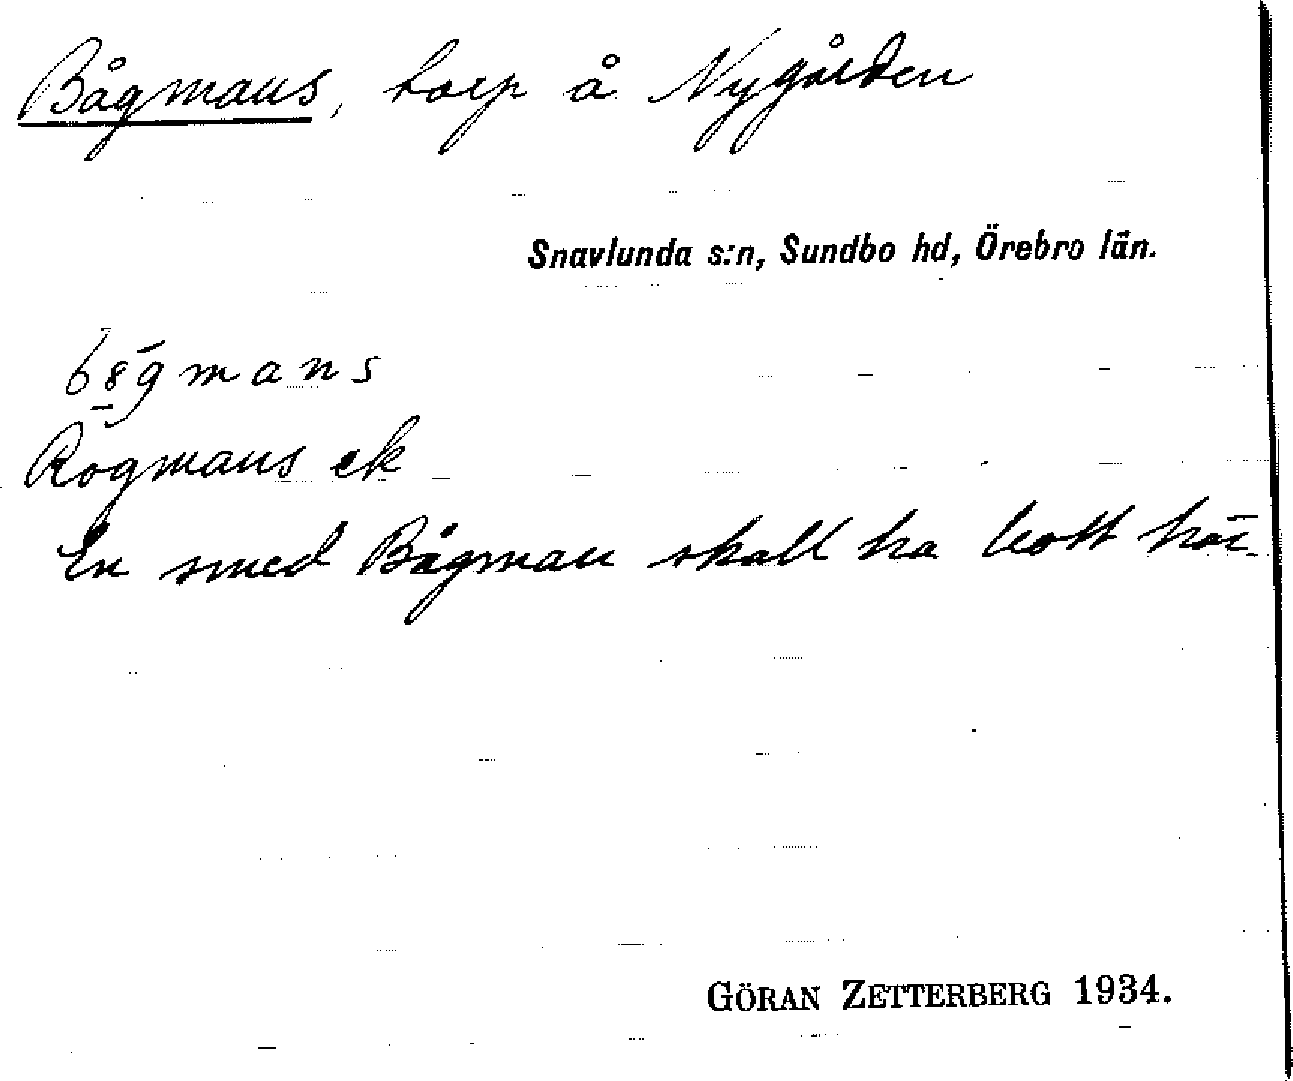 Bågmans, torp å Nygården
Snavlunda s:n, Sundbo hd, Örebro län.
b8́gmans
Rogmans ek
En smed Bågman skall ha bott här
GÖRAN ZETTERBERG 1934.